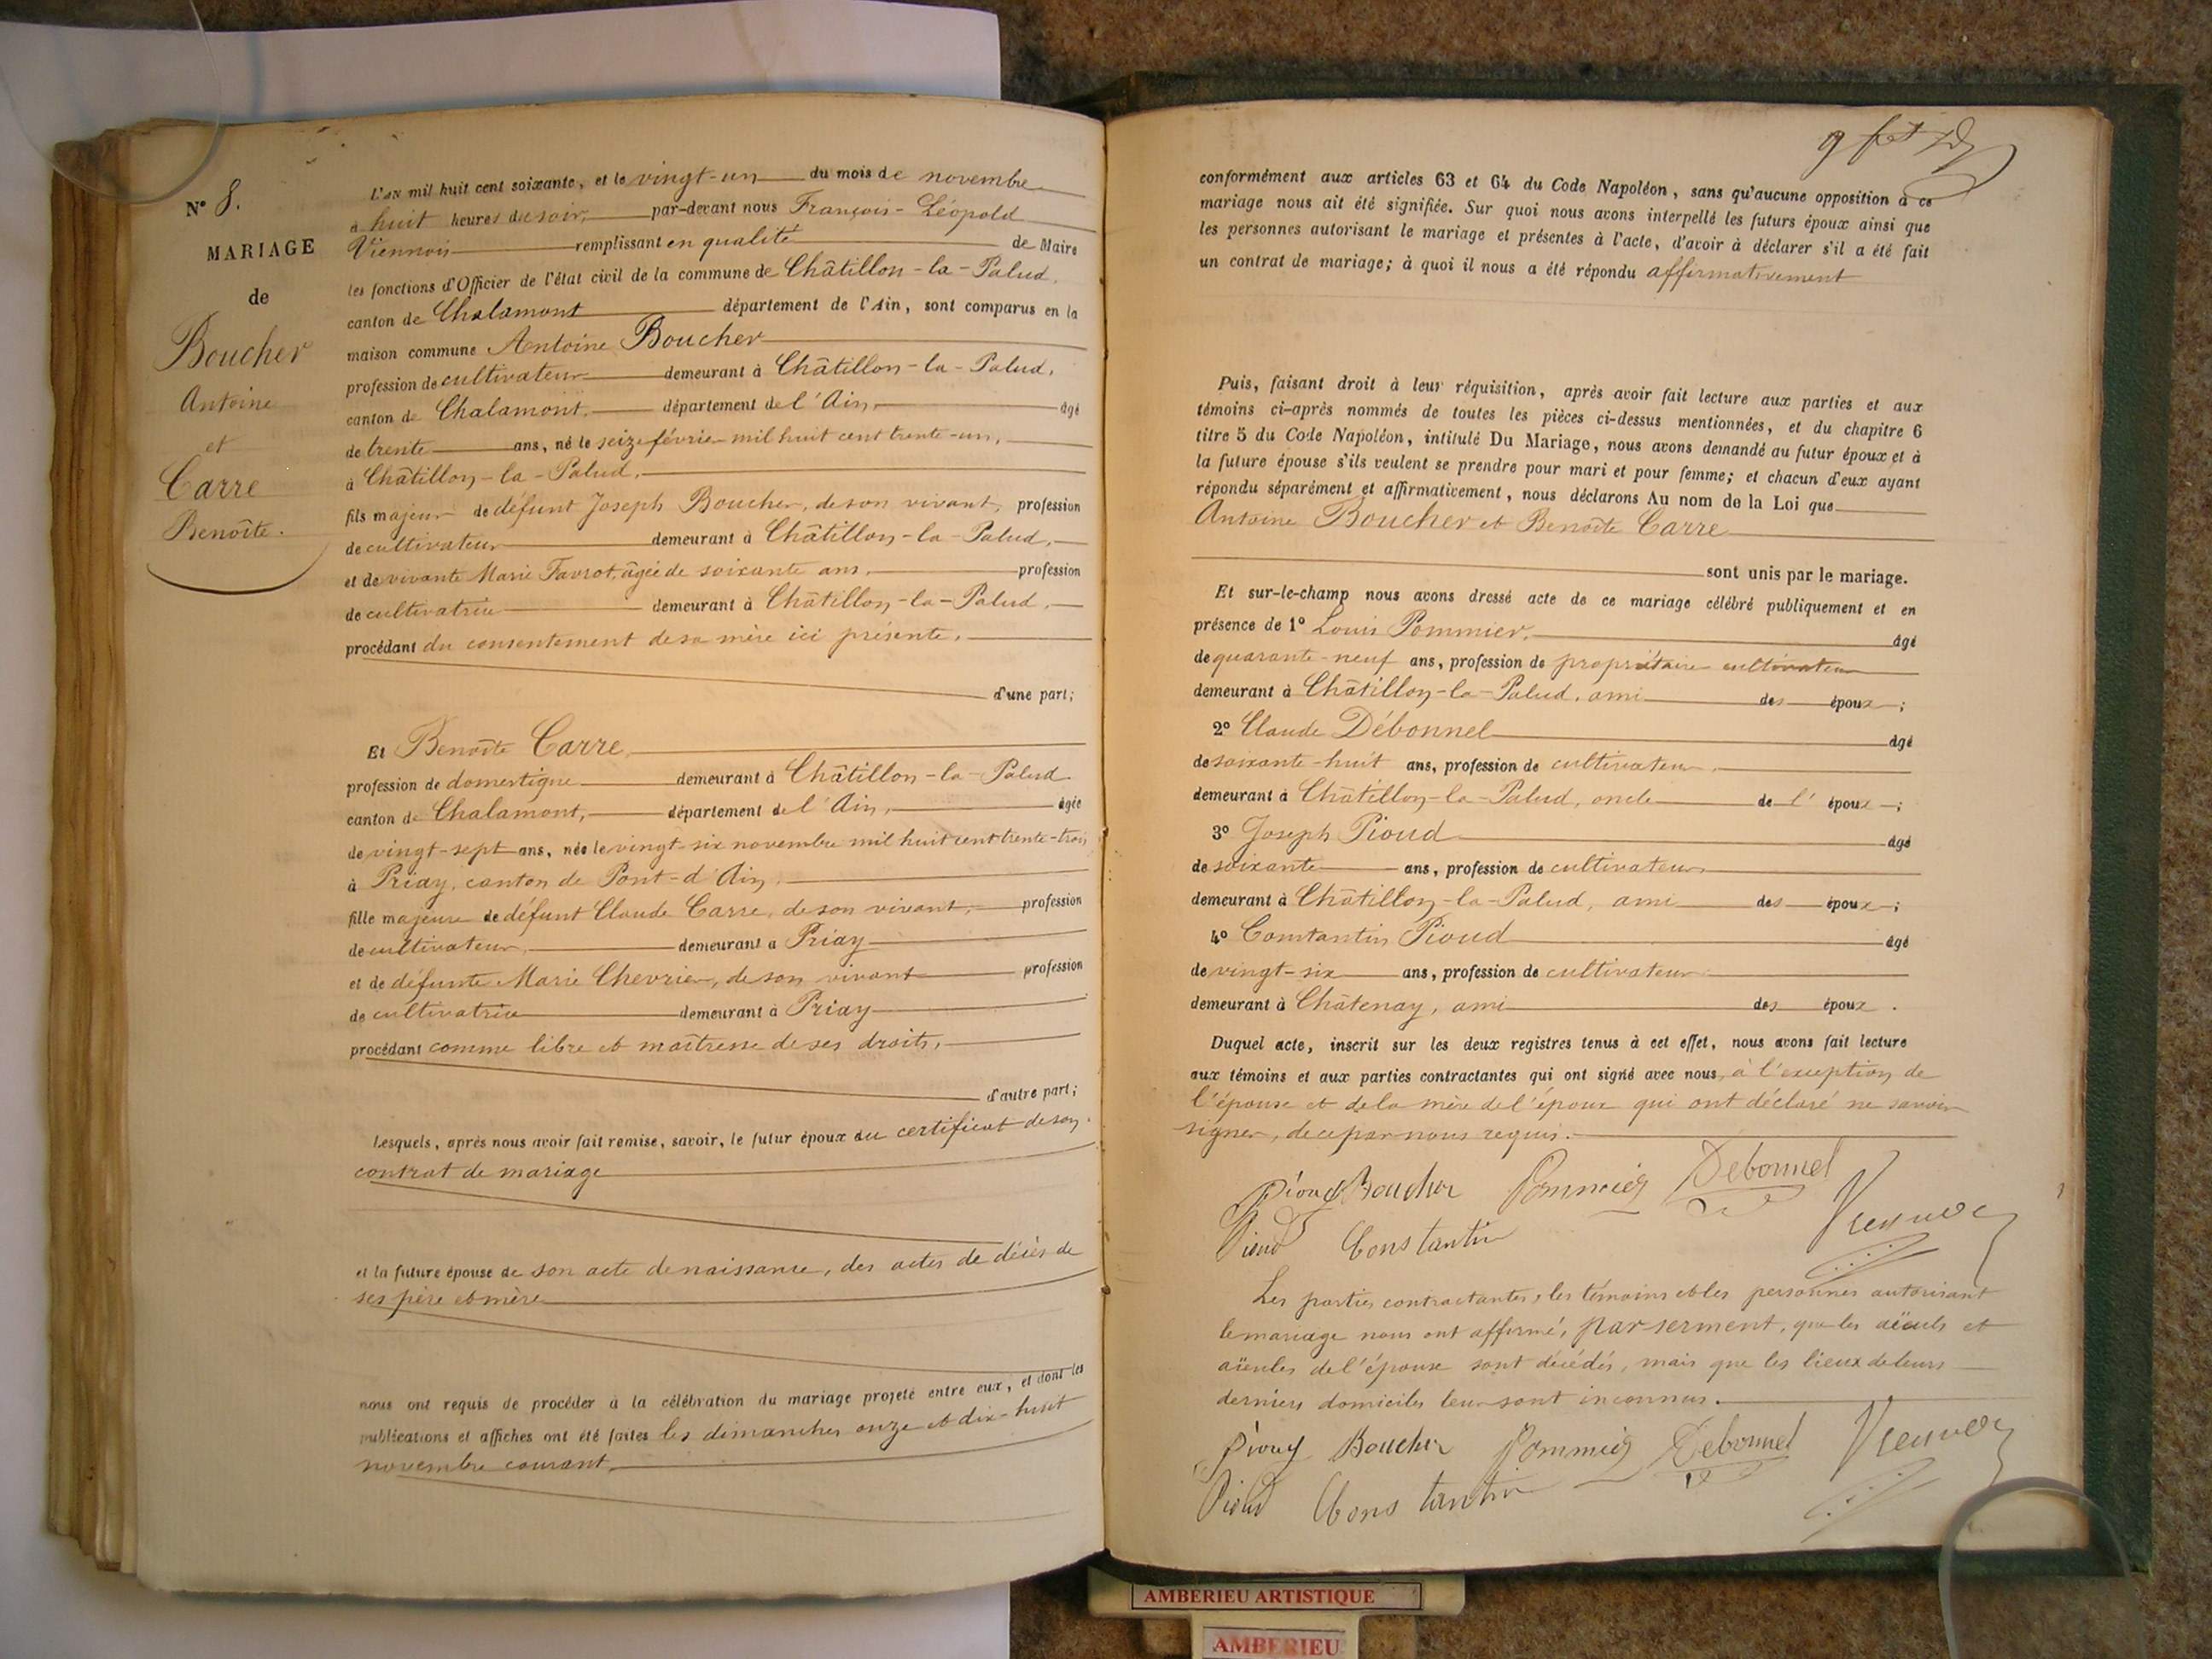 N° 8.
MARIAGE
de
Boucher
Antoine
et
Carre
Benoîte.
L'an mil huit cent soixante, et le vingt-un du mois de novembre
à huit heures du soir, par-devant nous François-Léopold
Viennois remplissant en qualité de Maire
les fonctions d'Officier de l'état civil de la commune de Châtillon-la-Palud,
canton de Chalamont département de l'Ain, sont comparus en la
maison commune Antoine Boucher
profession de cultivateur demeurant à Châtillon-la-Palud,
canton de Chalamont, département de l'Ain, âgé
de trente ans, né le seize février mil huit cent trente-un,
à Châtillon-la-Palud,
fils majeur de défunt Joseph Boucher, de son vivant, profession
de cultivateur demeurant à Châtillon-la-Palud,
et de vivante Marie Favrot, âgée de soixante ans, profession
de cultivatrice demeurant à Châtillon-la-Palud,
procédant du consentement de sa mère ici présente,
d'une part;
Et Benoîte Carre,
profession de domestique demeurant à Châtillon-la-Palud
canton de Chalamont, département de l'Ain, âgée
de vingt-sept ans, née le vingt-six novembre mil huit cent trente-trois
à Priay, canton de Pont-d'Ain,
fille majeure de défunt Claude Carre, de son vivant, profession
de cultivateur, demeurant à Priay
et de défunte Marie Chevrier, de son vivant profession
de cultivatrice demeurant à Priay
procédant comme libre et maîtresse de ses droits,
d'autre part;
Lesquels, après nous avoir fait remise, savoir, le futur époux du certificat de son
contrat de mariage
et la future épouse de son acte de naissance, des actes de décès de
ses père et mère
nous ont requis de procéder à la célébration du mariage projeté entre eux, et dont les
publications et affiches ont été faites les dimanches onze et dix-huit
novembre courant,
conformément aux articles 63 et 64 du Code Napoléon, sans qu'aucune opposition à ce
mariage nous ait été signifiée. Sur quoi nous avons interpellé les futurs époux ainsi que
les personnes autorisant le mariage et présentes à l'acte, d'avoir à déclarer s'il a été fait
un contrat de mariage; à quoi il nous a été répondu affirmativement
Puis, faisant droit à leur réquisition, après avoir fait lecture aux parties et aux
témoins ci-après nommés de toutes les pièces ci-dessus mentionnées, et du chapitre 6
titre 5 du Code Napoléon, intitulé Du Mariage, nous avons demandé au futur époux et à
la future épouse s'ils veulent se prendre pour mari et pour femme; et chacun d'eux ayant
répondu séparément et affirmativement, nous déclarons Au nom de la Loi que
Antoine Boucher et Benoîte Carre
sont unis par le mariage.
Et sur-le-champ nous avons dressé acte de ce mariage célébré publiquement et en
présence de 1° Louis Pommier, âgé
de quarante-neuf ans, profession de propriétaire cultivateur
demeurant à Châtillon-la-Palud, ami des époux;
2° Claude Débonnel âgé
de soixante-huit ans, profession de cultivateur,
demeurant à Châtillon-la-Palud, oncle de l'époux;
3° Joseph Pioud âgé
de soixante ans, profession de cultivateur
demeurant à Châtillon-la-Palud, ami des époux;
4° Constantin Pioud âgé
de vingt-six ans, profession de cultivateur
demeurant à Châtenay, ami des époux.
Duquel acte, inscrit sur les deux registres tenus à cet effet, nous avons fait lecture
aux témoins et aux parties contractantes qui ont signé avec nous, à l'exception de
l'épouse et de la mère de l'époux qui ont déclaré ne savoir
signer, de ce par nous requis.
Pioud Boucher Pommier Debonnel
Pioud Constantin Viennois
Les parties contractantes, les témoins et les personnes autorisant
le mariage nous ont affirmé, par serment, que les aïeuls et
aïeules de l'épouse sont décédés, mais que les lieux de leurs
derniers domiciles leur sont inconnus.
Pioud Boucher Pommier Debonnel Viennois
Pioud Constantin
AMBERIEU ARTISTIQUE
AMBERIEU